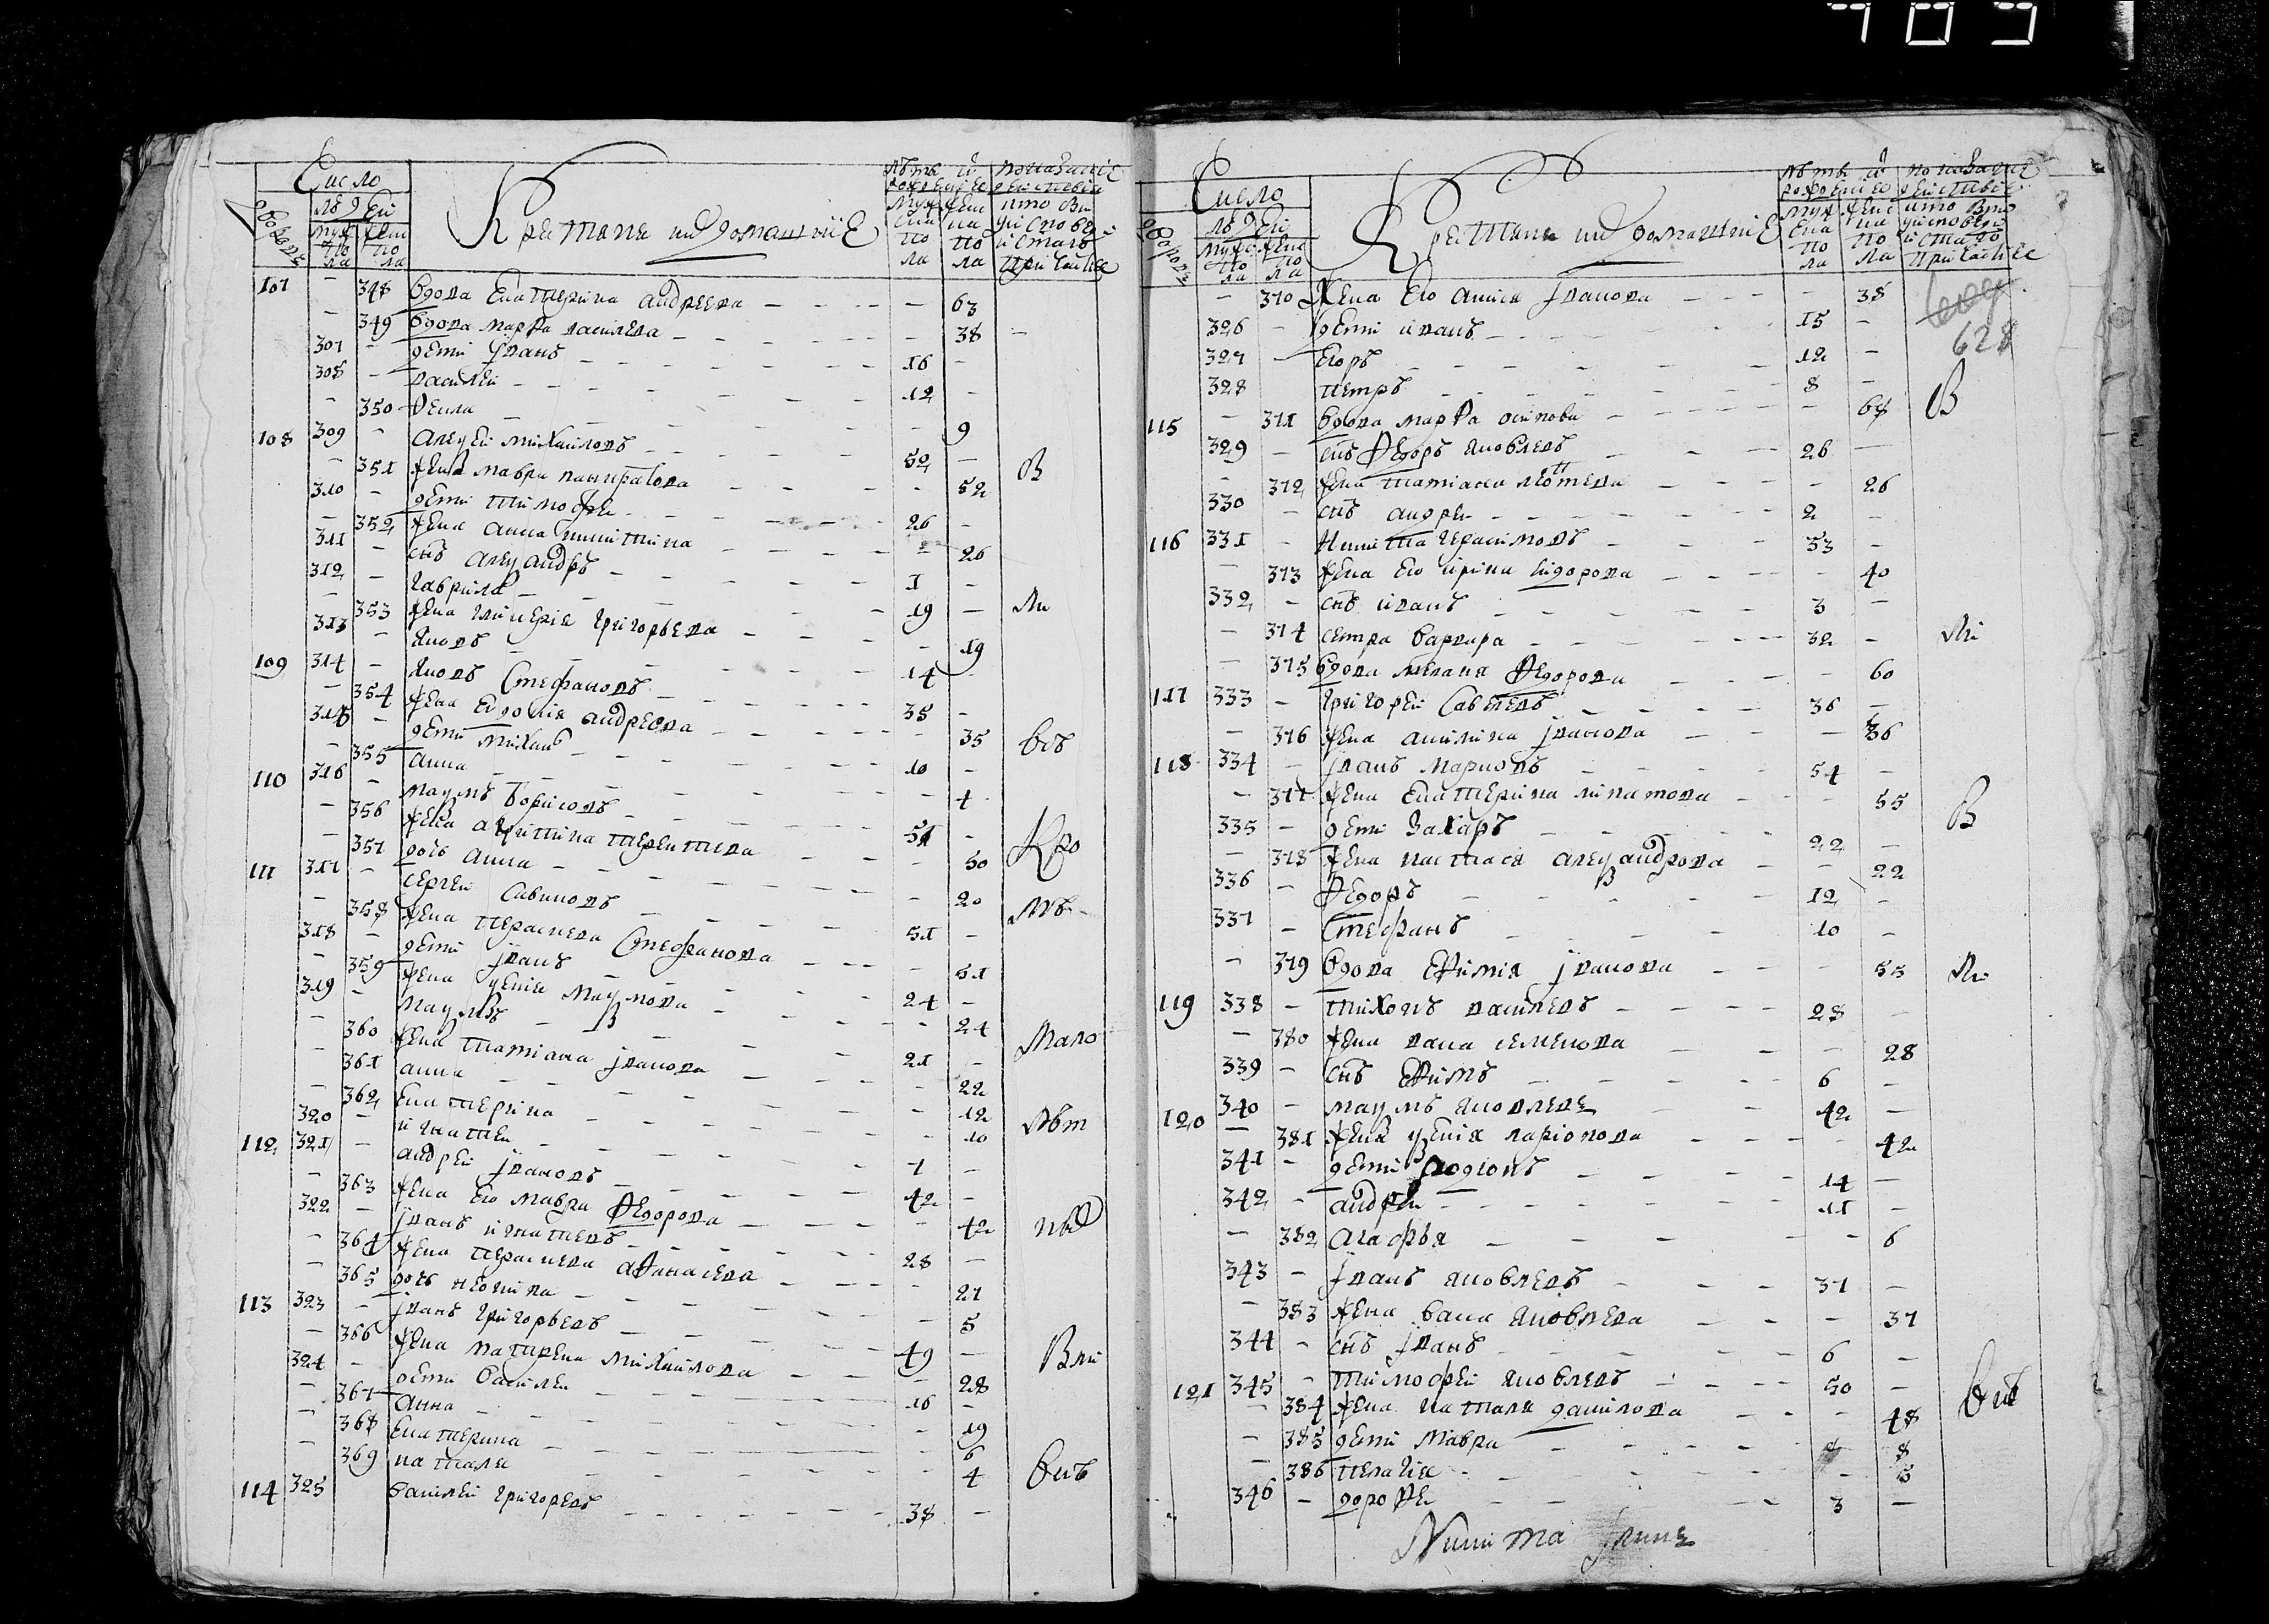 Число
Дворовъ
людей
Муж: Жен:
по по
ла ла
Крестьяне и их домашние
Лѣтъ от
рождения
Муж Жен
ска ска
по по
ла ла
показание
действия
кто был
у исповеди
и святого
причастия
107 - 348 вдова Екатерина андреева - 63
- 349 вдова марфа василева - 38
307 - дети Іванъ 16 -
308 - василей 12 -
- 350 Фекла - 9
108 309 - алеѯей михайловъ 52 -
- 351 жена мавра панкратова - 52
310 - дети тимофей 26 -
- 352 жена анна никитина - 26
311 - снъ алеѯандръ 1 -
312 - гаврила 19 -
- 353 жена гликерия григорьева - 19
313 - яковъ 14 -
109 314 - яковъ Стефановъ 35 -
- 354 жена евдокия андреева - 35
315 - дети михаил 10 -
- 355 анна - 4
110 316 - наумъ борисовъ 51 -
- 356 жена агрипина терентиева - 50
- 357 дочь анна - 20
111 317 - сергей савиновъ 51 -
- 358 жена перасковя Стефанова - 51
318 - дети Іванъ 24 -
- 359 жена ѯения наумова - 24
319 - наумъ 21 -
- 360 жена татиана Іванова - 22
- 361 анна - 12
- 362 екатерина - 10
320 - игнатей 7 -
112 321 - андрей Івановъ 42 -
- 363 жена ево мавра Федорова - 42
322 - Іванъ игнатиевъ 28 -
- 364 жена пераскева афанасева - 27
- 365 дочь неонила - 5
113 323 - Іванъ григорьевъ 49 -
- 366 жена матрена михайлова - 28
324 - дети василей 16 -
- 367 анна - 19
- 368 екатерина - 6
- 369 наталя - 4
114 325 василей григоревъ 38 -
Число
Дворовъ
людей
Муж: Жен:
по по
ла ла
Крестьяне и их домашние
Лѣтъ от
рождения
Муж Жен
ска ска
по по
ла ла
показание
действия
кто был
у исповеди
и святого
причастия
628
- 370 жена ево анися Іванова - 38
326 - дети иванъ 15 -
327 - егоръ 12 -
328 петръ 8 -
115 - 371 вдова марфа осипова - 68
329 - снъ Федоръ яковлевъ 26 -
- 372 жена татиана - 26
330 - снъ андрей 2 -
116 331 - Никита герасимовъ 53 -
- 373 жена ево ирина сидорова - 40
332 - снъ иванъ 3 -
- 374 сестра варвара 32 -
- 375 вдова мелания Федорова - 60
117 333 - григорей Савелевъ 36 -
- 376 жена акилина Іванова - 36
118 334 - Іванъ марковъ 54 -
- 377 жена екатерина липатова - 55
335 - дети Захаръ 22 -
- 378 жена настася алеѯандрова - 22
336 - Федоръ 12 -
337 - Стефанъ 10 -
- 379 вдова ефимия Іванова - 55
119 338 - тихонъ василевъ 28 -
- 380 жена васа семенова - 28
339 - снъ ефимъ 6 -
120 340 - наумъ яковлевъ 42 -
- 381 жена ѯения ларионова - 42
341 - дети родионъ 14 -
342 - андрей 11 -
- 382 агафья - 6
343 - Іванъ яковлевъ 37 -
- 383 жена васа яковлева - 37
344 - снъ Іванъ 6 -
121 345 - тимофей яковлевъ 50 -
- 384 жена наталя данилова - 48
- 385 дети мавра 8
- 386 пелагия - 5
346 - дорофей 3 -
Никита